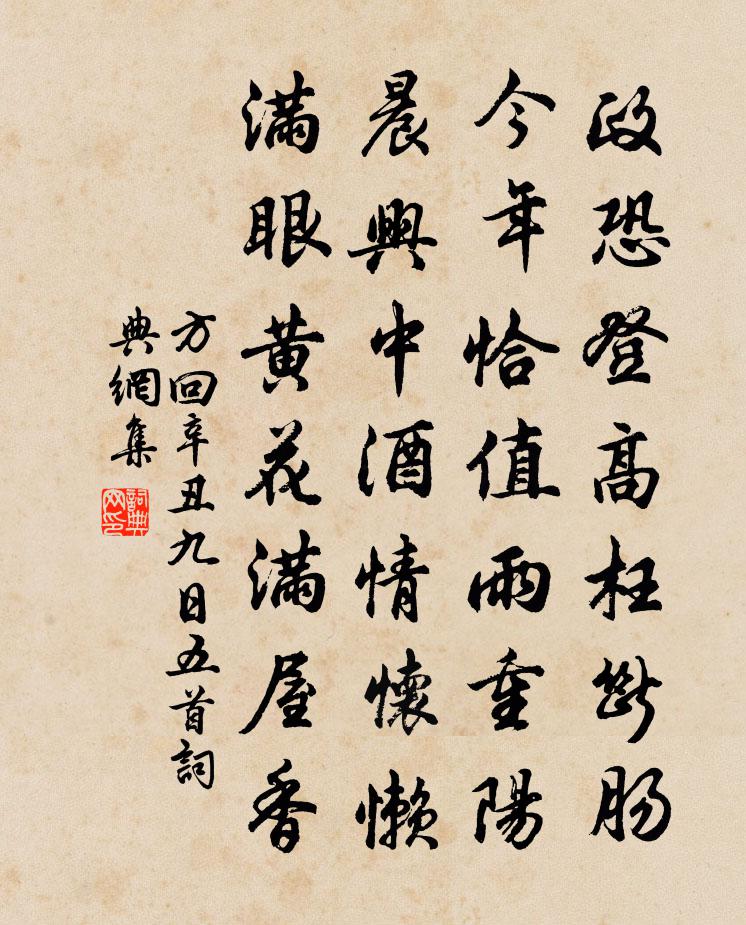 政恐登高枉斷腸
今年恰值雨重陽
晨興中酒情懷懶
滿眼黃花滿屋香
方回辛丑九日五首詞
典網集
詞典
网印